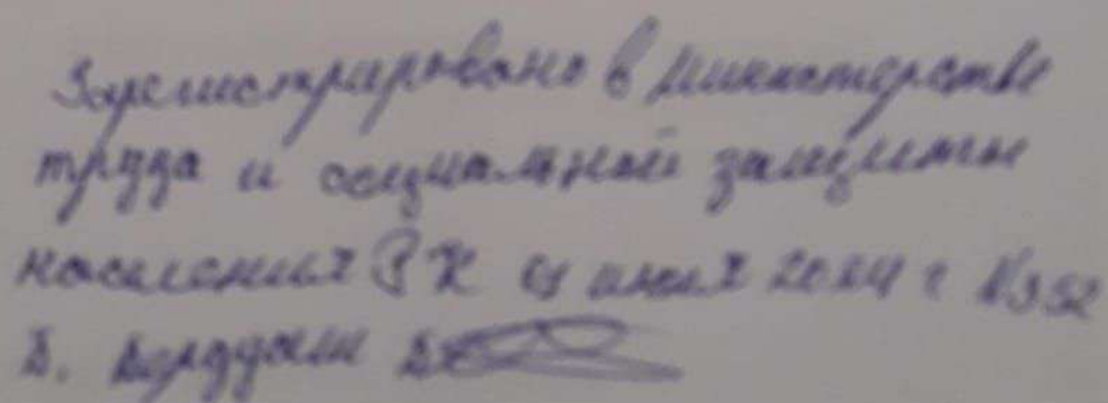 Зарегистрировано в Министерстве
труда и социальной защиты
населения РК июля 2014 г №352
Б.